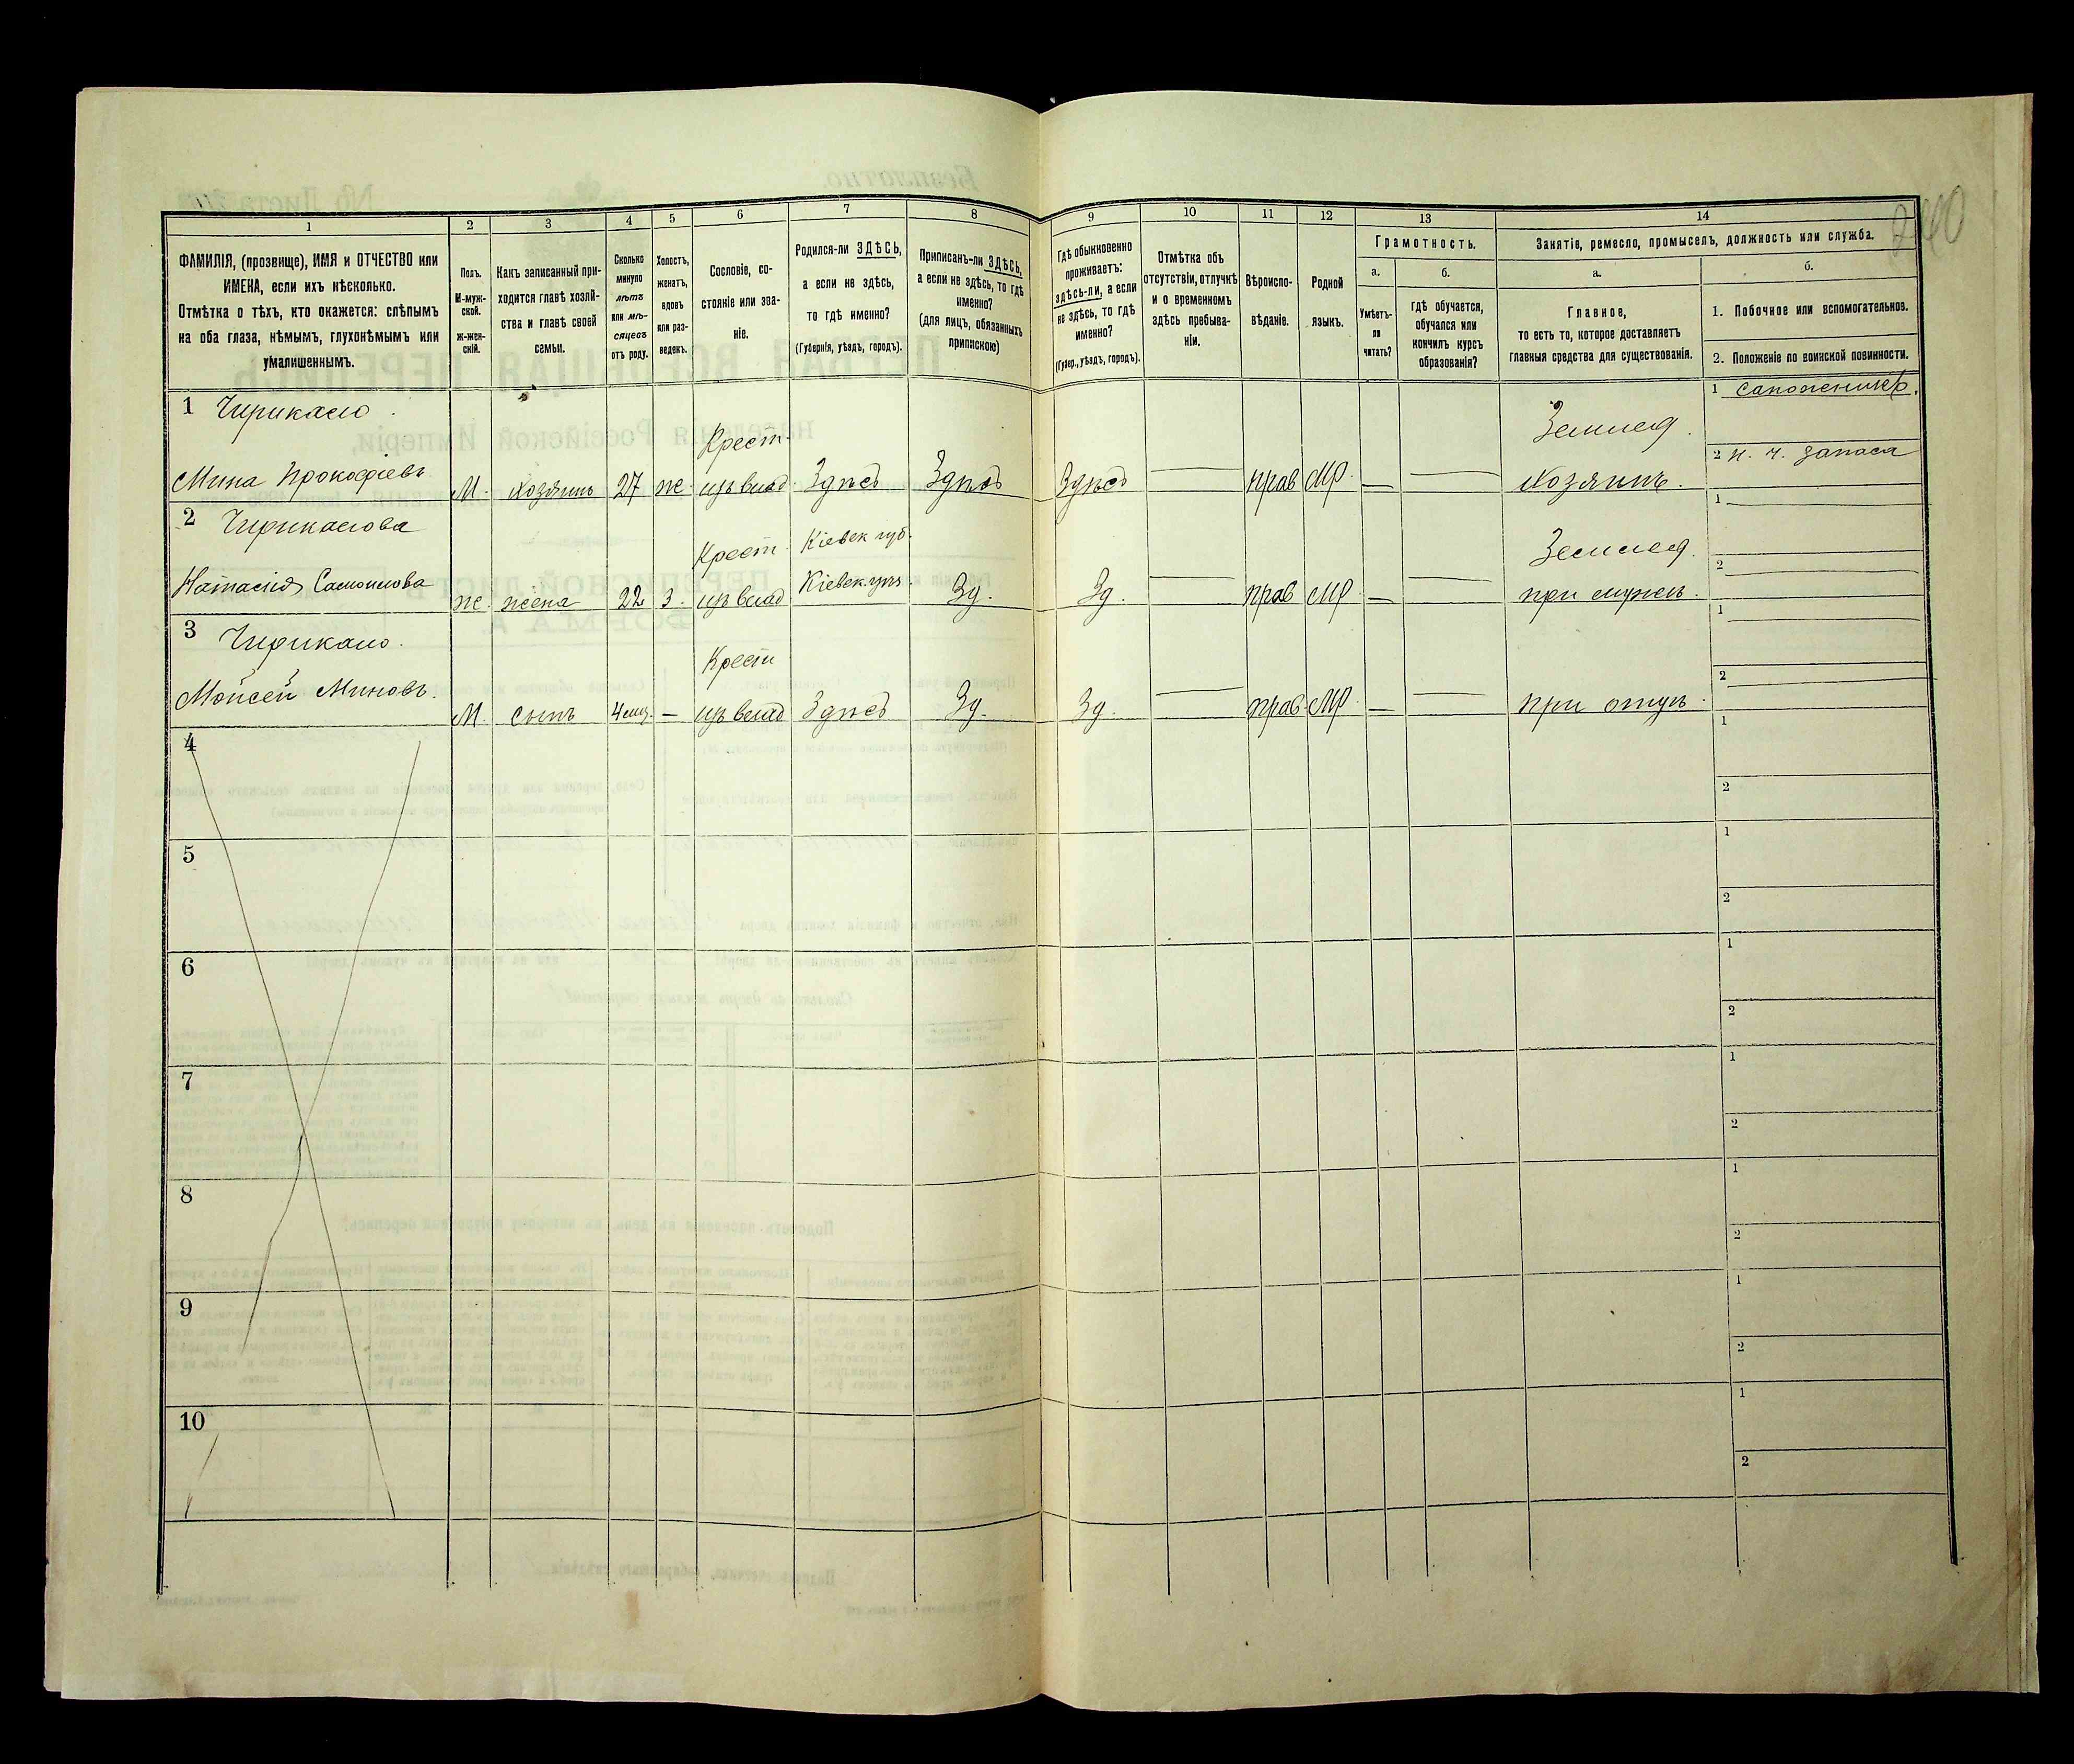 240
1
2
3
4
5
6
7
8
9
10
11
12
13
14
ФАМИЛІЯ, (прозвище), ИМЯ и ОТЧЕСТВО или
ИМЕНА, если ихъ нѣсколько.
Отмѣтка о тѣхъ, кто окажется: слѣпымъ
на оба глаза, нѣмымъ, глухонѣмымъ или
умалишеннымъ.
Полъ.
М-муж-
ской.
Ж-жен-
скій.
Какъ записанный при-
ходится главѣ хозяй-
ства и главѣ своей
семьи.
Сколько
минуло
лѣтъ
или мѣ-
сяцевъ
отъ роду.
Холостъ,
женатъ,
вдовъ
или раз-
веденъ.
Сословіе, со-
стояніе или зва-
ніе.
Родился-ли ЗДѢСЬ,
а если не здѣсь,
то гдѣ именно?
(Губернія, уѣздъ, городъ).
Приписанъ-ли ЗДѢСЬ,
а если не здѣсь, то гдѣ
именно?
(для лицъ, обязанныхъ
припискою)
Гдѣ обыкновенно
проживаетъ:
здѣсь-ли, а если
не здѣсь, то гдѣ
именно?
(Губер., уѣздъ, городъ).
Отмѣтка объ
отсутствіи, отлучкѣ
и о временномъ
здѣсь пребыва-
ніи.
Вѣроиспо-
вѣданіе.
Родной
языкъ.
Грамотность.
а.
б.
Умѣетъ-
ли
читать?
гдѣ обучается,
обучался или
кончилъ курсъ
образованія?
Занятіе, ремесло, промыселъ, должность или служба.
а.
б.
Главное,
то есть то, которое доставляетъ
главныя средства для существованія.
1. Побочное или вспомогательное.
2. Положеніе по воинской повинности.
1 Чирикало
Мина Прокофіевъ
М. хозяинъ 27 ж.
Крест.
изъ влад
Здѣсь Здѣсь Здѣсь
прав МР.
Землед.
Хозяинъ.
1
2 н. ч. запаса
2 Чирикалова
Наталія Самоилова
ж. жена 22 З.
Крест.
изъ влад
Кіевск губ.
Кіевск. уѣз.
Зд. Зд. прав МР.
Землед.
при мужѣ.
1
2
3 Чирикало.
Мойсей Миновъ.
М. сынъ 4 мц. —
Крест
изъ влад
Здѣсь Зд. Зд. прав. МР.
при отцѣ.
1
2
4
1
2
5
1
2
6
1
2
7
1
2
8
1
2
9
1
2
10
1
2